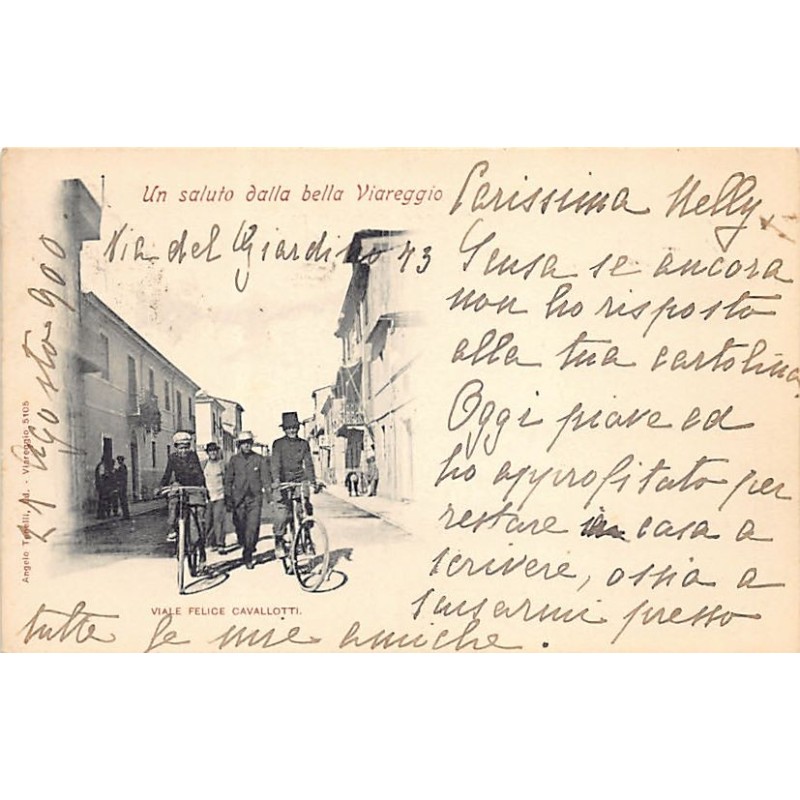 Un saluto dalla bella Viareggio
Via del Giardino 43
21 Agosto 900
Carissima Nelly,
Scusa se ancora
non ho risposto
alla tua cartolina.
Oggi piove ed
ho approfitato per
restare in casa a
scrivere, ossia a
scusarmi presso
tutte le mie amiche.
VIALE FELICE CAVALLOTTI.
Angelo Ed. - Viareggio 5105